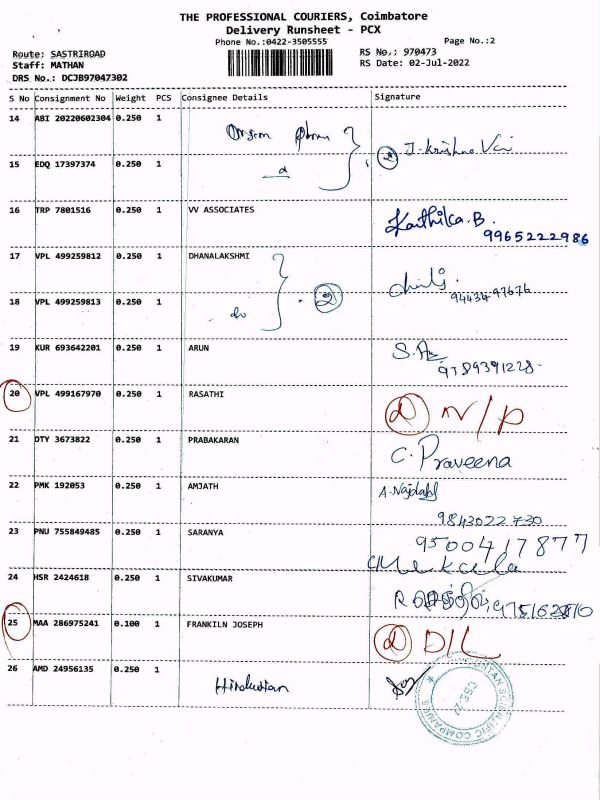 THE PROFESSIONAL COURIERS, Coimbatore
Delivery Runsheet - PCX
Phone No.:0422-3505555
Page No.:2
Route: SASTRIROAD
Staff: MATHAN
DRS No.: DCJB97047302
RS No.: 970473
RS Date: 02-Jul-2022
S No Consignment No Weight PCS Consignee Details Signature
14 ABI 20220602304 0.250 1
J. Krishna
15 EDQ 17397374 0.250 1
16 TRP 7801516 0.250 1 VV ASSOCIATES Karthika.B.
9965222986
17 VPL 499259812 0.250 1 DHANALAKSHMI
94434 97676
18 VPL 499259813 0.250 1 do 2
19 KUR 693642201 0.250 1 ARUN
9789391228
20 VPL 499167970 0.250 1 RASATHI N/P
21 OTY 3673822 0.250 1 PRABAKARAN C. Praveena
22 PMK 192053 0.250 1 AMJATH
9843022730
23 PNU 755849485 0.250 1 SARANYA 9500417877
24 HSR 2424618 0.250 1 SIVAKUMAR
25 MAA 286975241 0.100 1 FRANKILN JOSEPH D/L
26 AMD 24956135 0.250 1 Hindustan
HINDUSTAN SCIENTIFIC COMPANIES